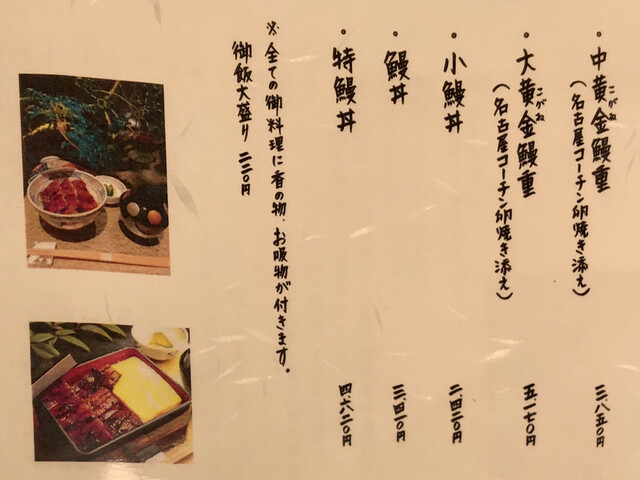 ・中黄金鰻重
こがね
(名古屋コーチン卵焼き添え)
三、八五〇円
・大黄金鰻重
こがね
(名古屋コーチン卵焼き添え)
五、一七〇円
・小鰻丼
二、四二〇円
・鰻丼
三、四一〇円
・特鰻丼
四、六二〇円
※全ての御料理に香の物、お吸物が付きます。
御飯大盛り 二二〇円